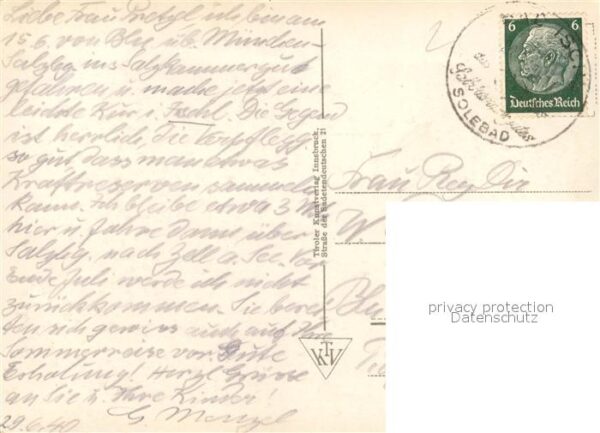 Liebe Frau Pretzl ich bin am
15.6. von Bln üb. München-
Salzbg ins Salzkammergut
gefahren u. mache jetzt eine
leichte Kur i. Ischl. Die Gegend
ist herrlich die Verpflegg
so gut dass man etwas
Kraftreserven sammeln
kann. Ich bleibe etwa 3 W.
hier u. fahre dann über
Salzbg. nach Zell a. See. Vor
Ende Juli werde ich nicht
zurückkommen. Sie berei
ten sich gewiss auch auf Ihre
Sommerreise vor. Gute
Erholung! Herzl Grüsse
an Sie u. Ihre Kinder!
29.6.40 G. Menzel
Tiroler Kunstverlag Innsbruck,
Straße der Sudetendeutschen 21
KTV
2
6 6
Deutsches Reich
SOLEBAD
Frau Reg Dir
W.
privacy protection
Datenschutz